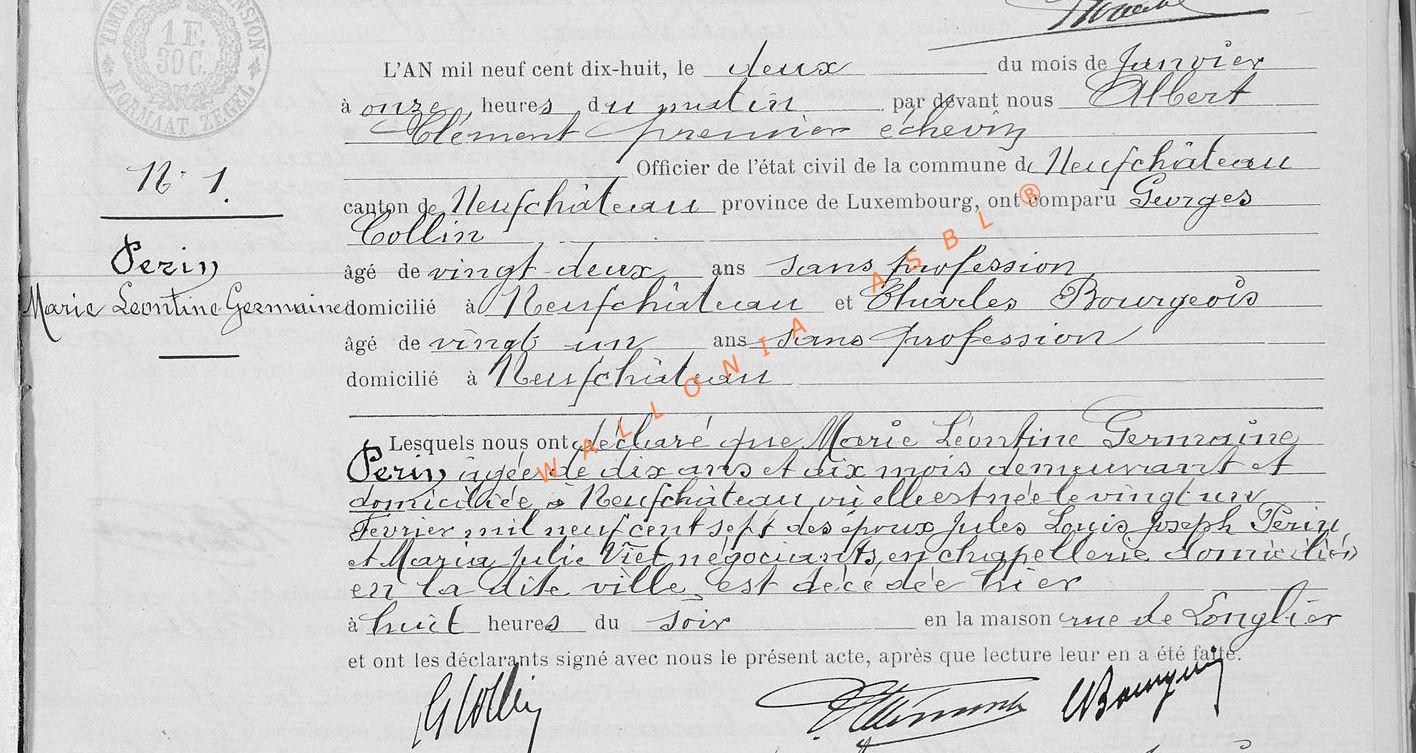 TIMBRE
1 F.
30 C.
FORMAAT ZEGEL
L'AN mil neuf cent dix-huit, le deux du mois de Janvier
à onze heures du matin par devant nous Albert
Clément premier échevin
N° 1.
Officier de l'état civil de la commune de Neufchâteau
canton de Neufchâteau province de Luxembourg, ont comparu Georges
Collin
Perin
âgé de vingt-deux ans sans profession
Marie Leontine Germaine
domicilié à Neufchâteau et Charles Bourgeois
âgé de vingt un ans sans profession
domicilié à Neufchâteau
Lesquels nous ont déclaré que Marie Léontine Germaine
Perin, agée de dix ans et dix mois demeurant et
domiciliée à Neufchâteau où elle est née le vingt un
Fevrier mil neuf cent sept des époux Jules Louis Joseph Perin
et Maria Julie Viet négociants en chapellerie domiciliés
en la dite ville, est décédée hier
à huit heures du soir en la maison rue de Longlier
et ont les déclarants signé avec nous le présent acte, après que lecture leur en a été faite.
G Collin
WALLONIA ASBL ®